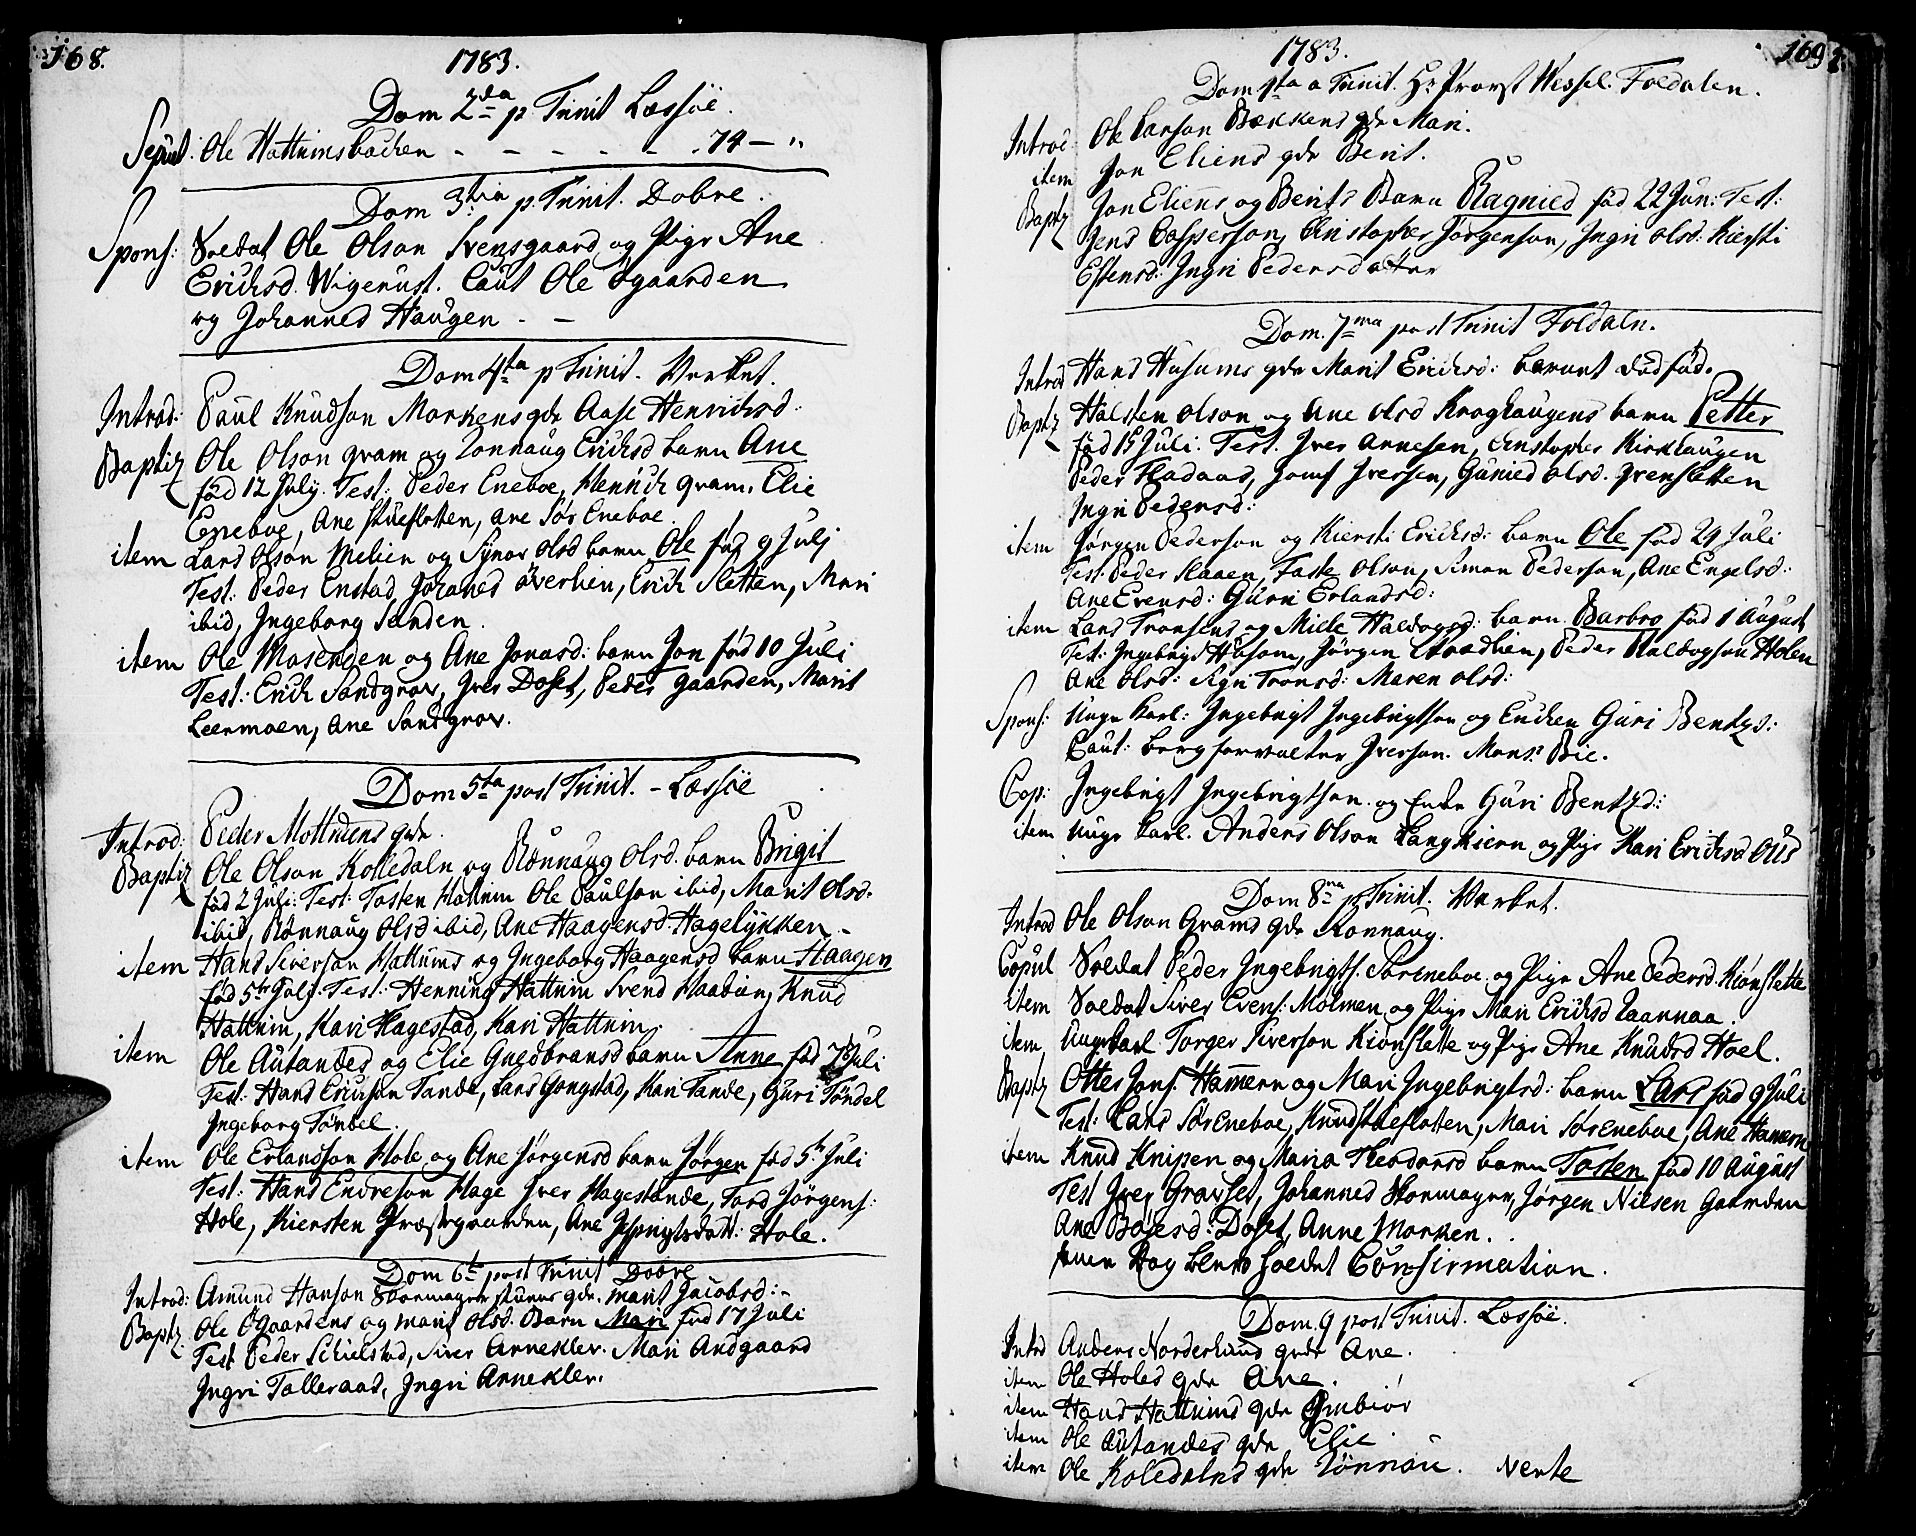 168.
1783.
Dom 2da p. Trinit Læssøe.
Sepult: Ole Hattumsbachen - - - - - 74 - "
Dom 3tia p. Trinit. Dobre.
Spons: Soldat Ole Olson Svensgaard og Pige Ane
Erichsd. Wigerust. Caut Ole øgaarden
og Johannes Haugen - -
Dom 4ta p Trinit. Verket.
Introd: Paul Knudson Morkens qde Aase Henrichsd:
Baptiz Ole Olson gram og Ronnaug Erichsd barn Ane
fød 12 July. Test: Peder Eneboe, Henrich gram, Elie
Eneboe, Ane Stueflotten, ane Sør Eneboe.
item Lars Olson Melien og Synov Olsd barn Ole fød 9 Julj
Test: Peder Enstad, Johanes øverlien, Erich Sletten, Mari
ibid, Ingeborg Sanden.
item Ole Mosenden og Ane Jonasd: barn Jon fød 10 Juli
Test: Erich Sandgrov, Iver Doset, Peder gaarden, Marit
Leermoen, ane Sandgrov.
Dom 5ta post Trinit. - Læssøe
Introd: Peder Mottudens qde.
Baptiz Ole Olson Kolledaln og Rønnaug Olsd. barn Brigit
fød 2 Juli: Test: Tosten Hattum Ole Paulson ibid, Marit Olsd.
ibid, Rønnaug Olsd ibid, Ane Haagensd. Hagelykken -
item Hans Siverson Hattums og Ingeborg Haagensd barn Haagen
fød 5te Julj. Test: Henning Hattum Svend Haabien, Knud
Hattum, Kari Hagestad, Kari Hattum.
item Ole Autandes og Elie Guldbransd barn Anne fød 7 Juli
Test: Hans Erichson Tande, Lars Gongstad, Kari Tande, Guri Tøndel
Ingeborg Tøndel.
item Ole Erlandson Hole og Ane Jørgensd barn Jørgen fød 5te Juli
Test: Hans Endreson Hage Iver Hagestande, Tord Jørgens:
Hole, Kiersten Præstgaarden, Ane Ingbrigtsdatt: Hole.
Dom 6te post Trinit Dobre
Introd: Amund Hanson qde. Marit Jacobsd: -
Baptz: Ole Øgaardens og marit Olsd. Barn Mari fød 17 Juli
Test Peder Schielstad, Siver Arneklev. Mari Andgaard
Ingri Tolleraas, Ingri Arneklev.
169.
1783.
Dom 1sta a Trinit. Hr. Provst Wessel. Foldalen.
Introd Ole Larson Bækkens qde Mari.
item Jon Eliens qde Berit.
Baptz Jon Eliens og Berits Barn Ragnied fød 22 Jun: Test:
Jens Casperson, Christopher Jørgenson, Ingri Olsd: Kiersti
Estensd: Ingri Pedersdatter
Dom. 7ma post Trinit Foldaln.
Introd Hans Husums qde Marit Erichsd: barnet dødfød.
Baptz Halsten Olson og Ane Olsd Kroghaugens barn Petter
fød 15 Juli. Test. Iver Arnesen, Christopher Kirkhaugen
Peder Fladaas, Josef Iversen, Gunied Olsd. grensletten
Ingri Pedersd:
item Jørgen Pederson og Kiersti Erichsd: barn Ole fød 24 Juli
Test: Peder Slaaen, Faste Olson, Simon Pederson, Ane Engelsd:
Ane Evensd: Guri Erlandsd:
item Lars Tronsens og Mille Haldogsd: barn Barbro fød 1 August
Test: Ingebrigt Husom, Jørgen Braadlien, Peder Haldogson Holen
Ane Olsd: Sigri Tronsd: Maren Olsd:
Spons: Unge Karl: Ingebrigt Ingebrigtson og Enchen Guri Bentzd:
Caut: bergforvalter Iverson. Mons. Bie.
Cop: Ingebrigt Ingebrigtson og Enke Guri Bentzd:
item unge Karl. Anders Olson Langkiern og Pige Kari Erichsd Øie
Dom 8va p Trinit. Verket.
Introd Ole Olson Grams qde Ronnaug.
Copul Soldat Peder Ingebrigts. Søreneboe og Pige Ane Pedersd. Kiønslette
item Soldat Siver Evens: Molmen og Pige Mari Erichsd Laannaa.
item Ungekarl Torger Siverson Kiønslette og Pige Ane Knudsd Hoel.
Baptz Otter Jons. Hamern og Mari Ingebrigtsd: barn Lars fød 9 Juli
Test: Lars Sør Eneboe, Knud Stueflotten, Mari Sør Eneboe, Ane Hamern
item Knud Knipen og Maria Theodorsd barn Tosten fød 10 August
Test Iver Gravset, Johannes Skormager, Jørgen Nielsen Gaarden
Ane Boiesd: Doset, Anne Morken.
samme Dag blev holdet Confirmation.
Dom. 9 post Trinit. Læssøe.
Introd Anders Norderhuus qde Ane.
item Ole Holes qde Ane.
item Hans Hattums qde Gunbiør
item Ole Autandes qde Elie.
item Ole Koledalns qde Rønnau. Verte